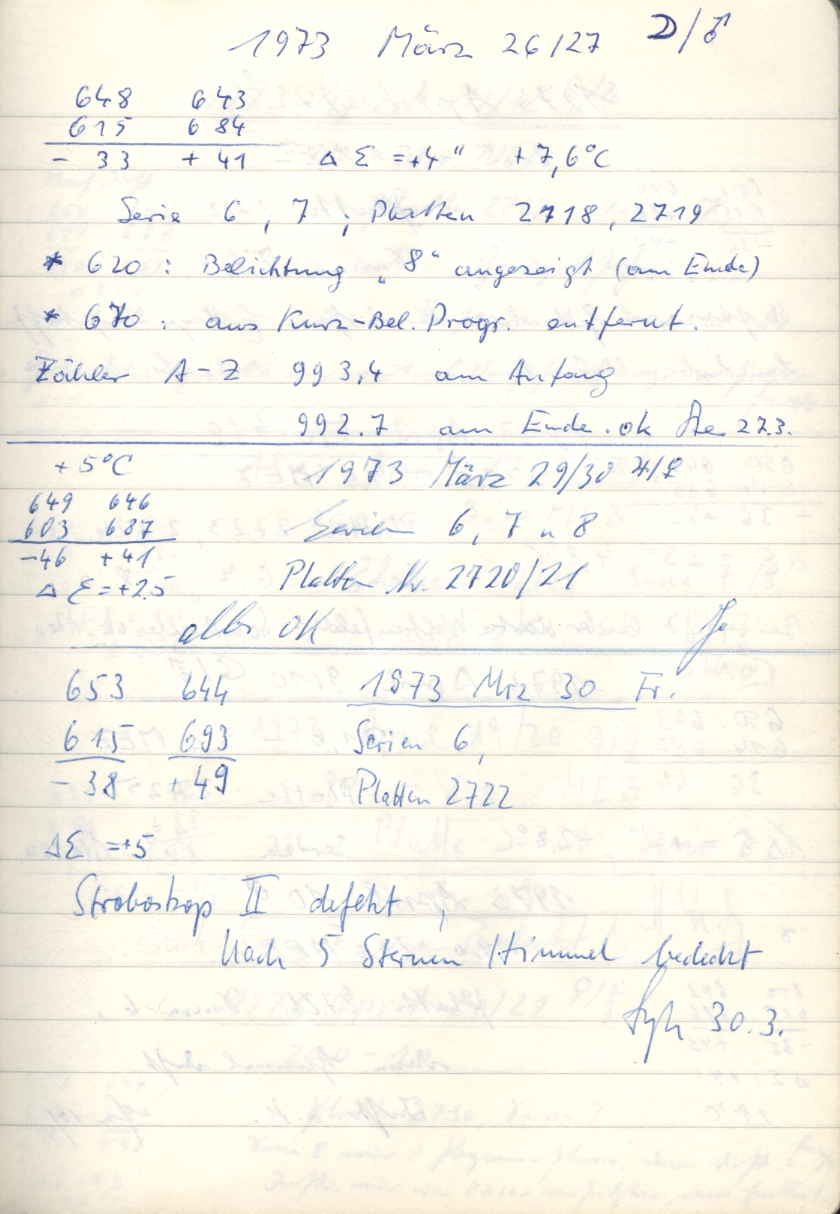 1973 März 26/27 ☽/♂
648 643
615 684
- 33 + 41 Δ Σ = +4" +7,6°C
Serie 6, 7; Platten 2718, 2719
* 620: Belichtung „8" angezeigt (am Ende)
* 670: aus Kurz-Bel. Progr. entfernt.
Zähler A-Z 993,4 am Anfang
992.7 am Ende. ok 27.3.
+5°C 1973 März 29/30 ♃/♀
649 646
603 687 Serien 6, 7 u 8
-46 +41
Δ Σ = +2.5 Platten Nr. 2720/21
alles OK
653 644 1973 Mrz 30 Fr.
615 693 Serien 6,
- 38 +49 Platten 2722
ΔΣ = +5
Stroboskop II defekt,
Nach 5 Sternen Himmel bedeckt
30.3.